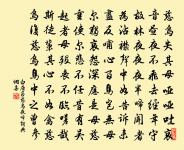 慈烏失其母啞啞吐哀
音晝夜不飛去經年守
故林夜夜夜半啼聞者
為沾襟聲中如告訴未
盡反哺心百鳥豈無母
爾獨哀怨深應是母慈
重使爾悲不任昔有吳
起者母歿喪不臨嗟哉
斯徒輩其心不如禽慈
烏復慈烏鳥中之曾參
白居易慈烏夜啼詞典